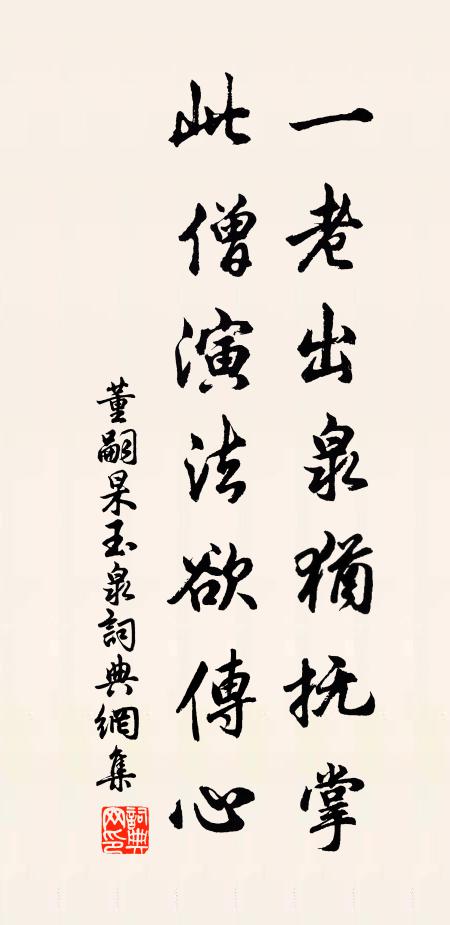 一老出泉猶抚掌
此僧演法欲傳心
董嗣杲玉泉詞典網集
詞典网印